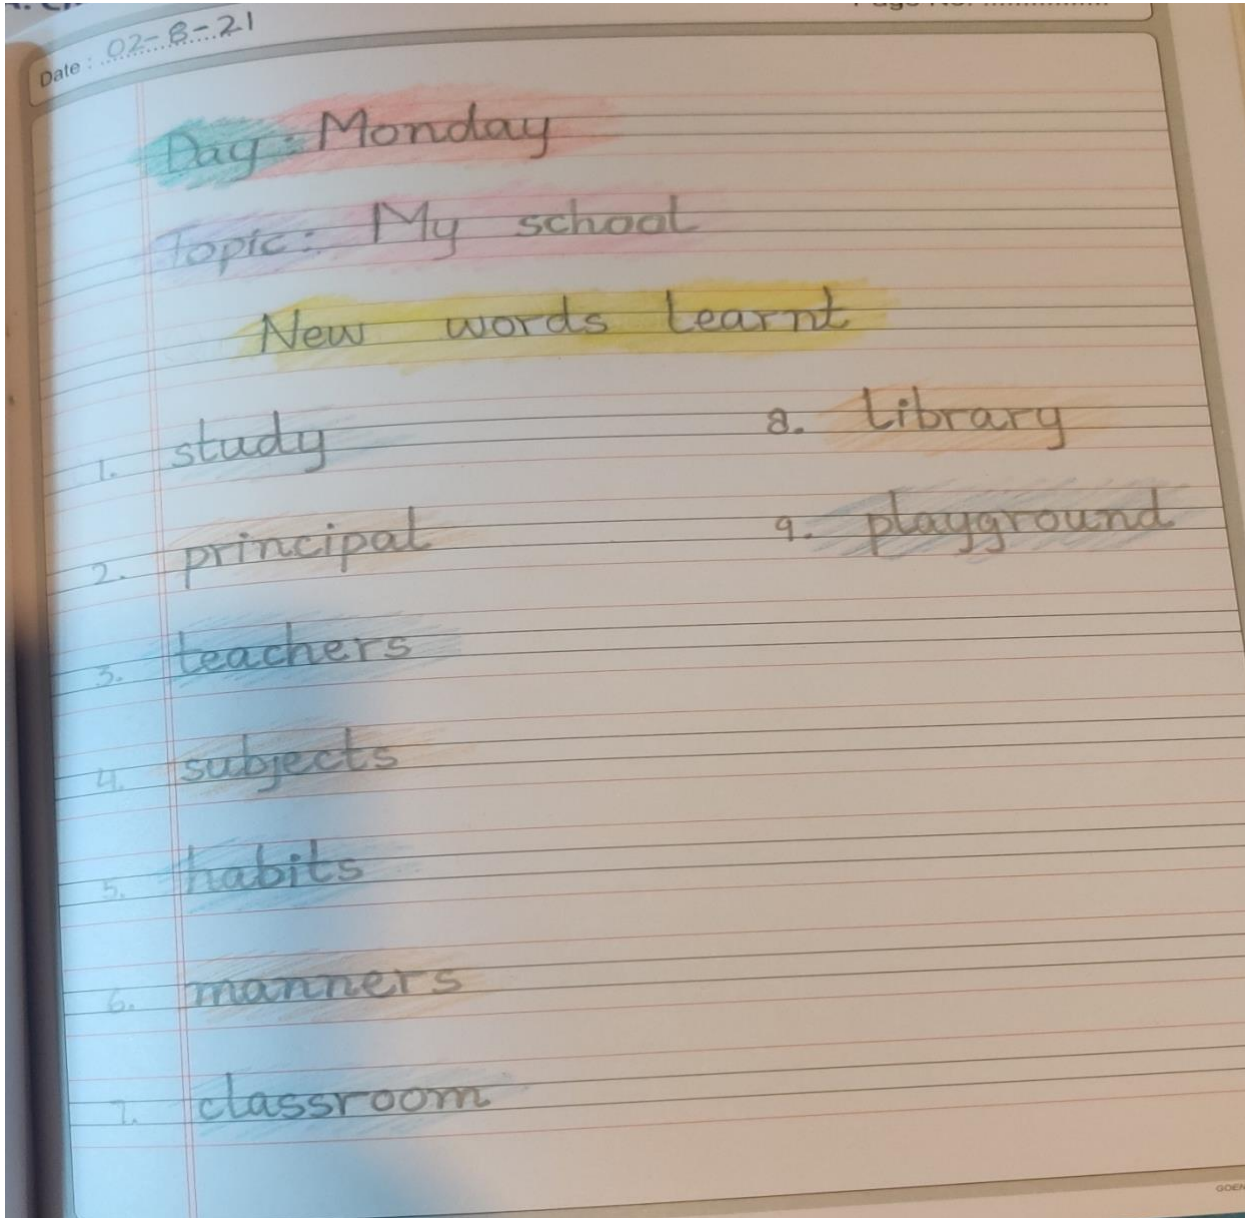 Date : 02-8-21
Day : Monday
Topic : My school
New words learnt
1. study
2. principal
3. teachers
4. subjects
5. habits
6. manners
7. classroom
8. library
9. playground